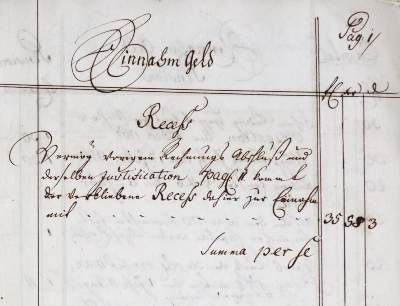 Pag 1
Einnahm Geld
fl xr d
Recess
Vermög vorigem Rechnungs Abschluß und
derselben Justification pag: 11 kommt
der verbliebene Recess dahier zur Einnahm
mit . . . . . . . . . 35 38 3
Summa per se